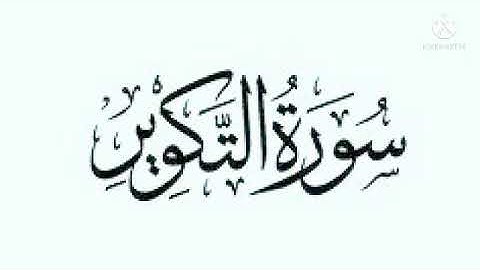 سُورَةُ التَّكْوِيرِ
KINEMASTER